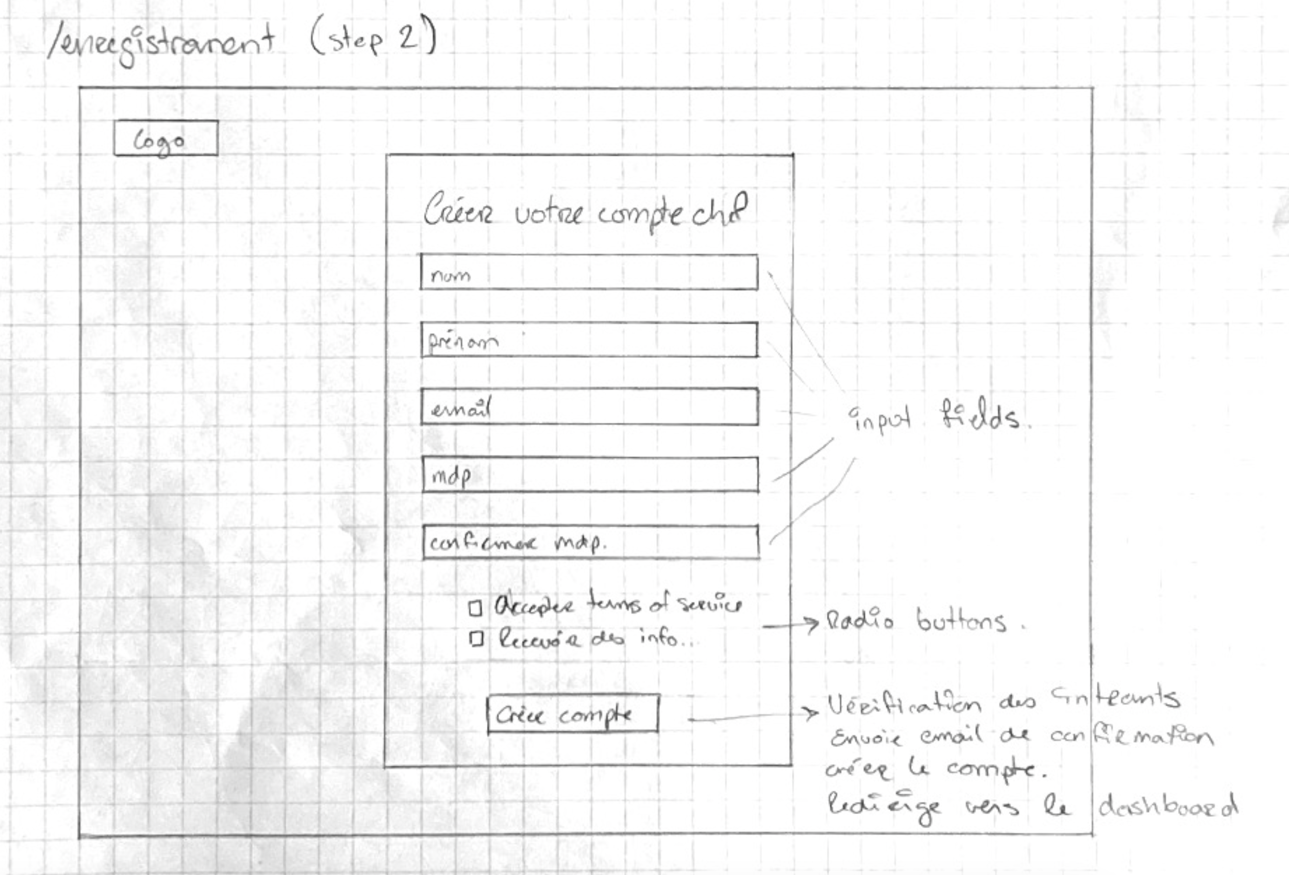 /enregistrement (step 2)
logo
Créer votre compte chef
nom
prénom
email
mdp
confirmer mdp.
input fields.
Accepter terms of service
Recevoir des info...
Radio buttons.
Créer compte
Vérification des intrants
Envoie email de confirmation
créer le compte.
Redirige vers le dashboard